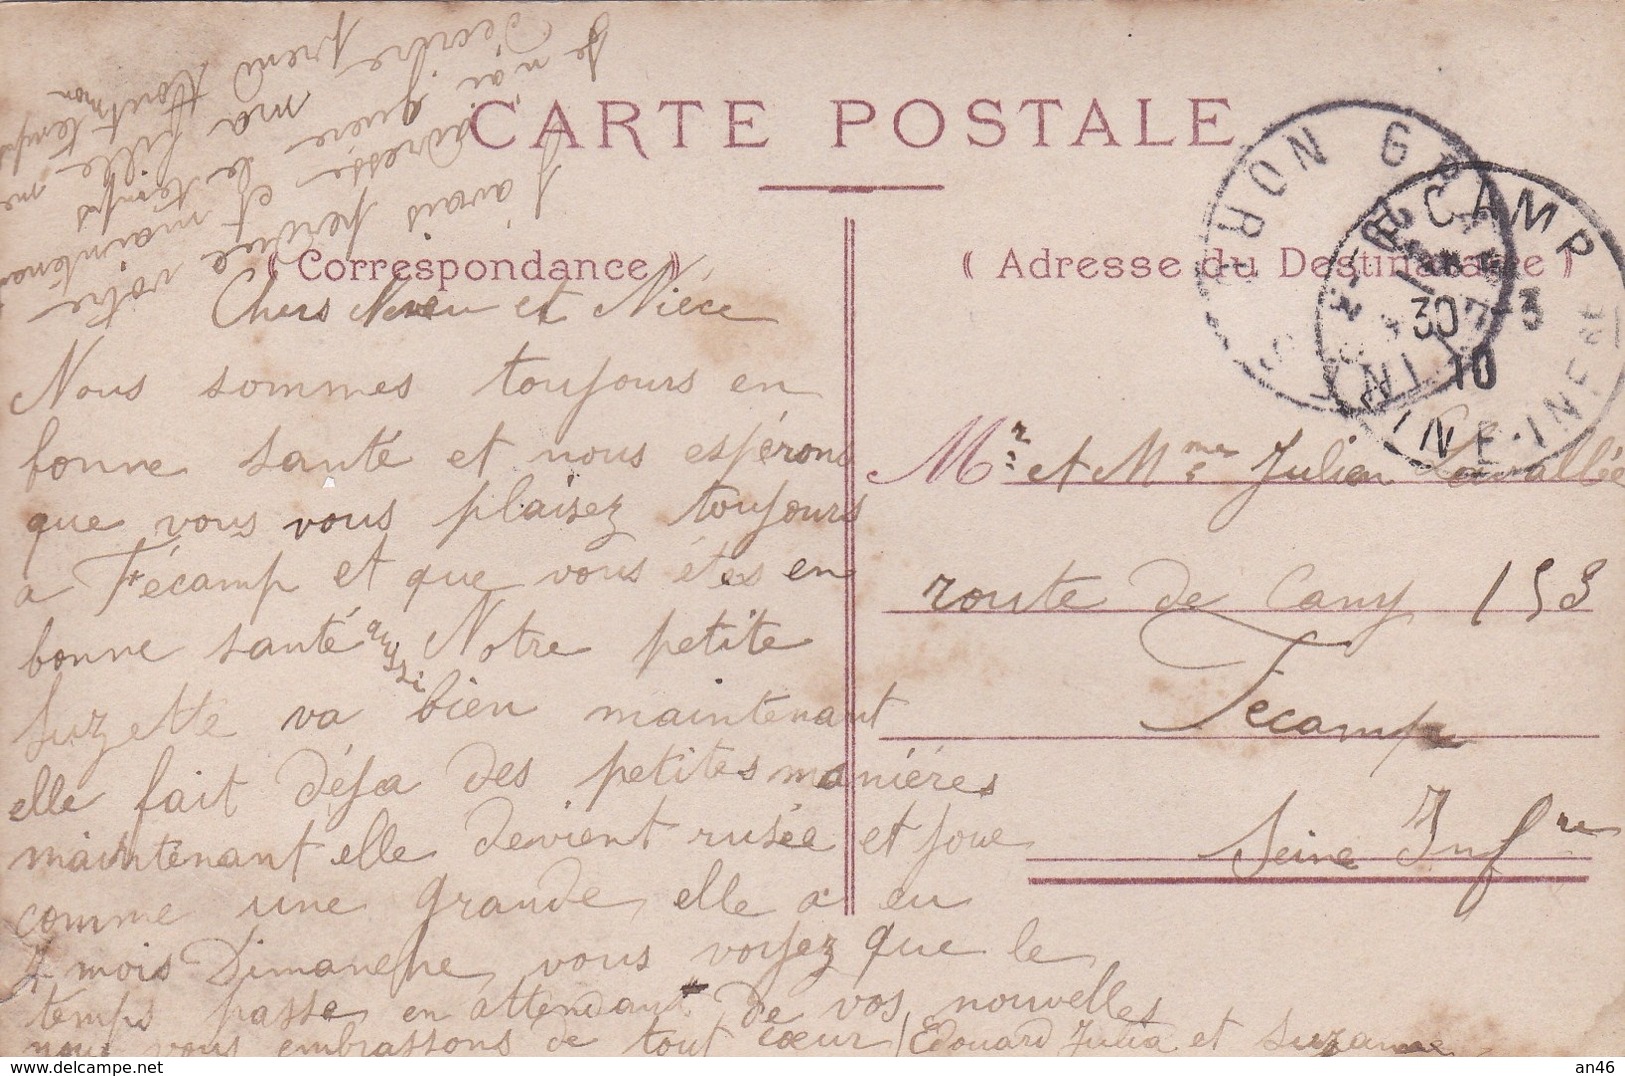 CARTE POSTALE
« Correspondance »
« Adresse du Destinataire »
Chers Neveu et Niéce
Nous sommes toujours en
bonne santé et nous espérons
que vous vous plaisez toujours
a Fécamp et que vous étes en
bonne santé aussi Notre petite
Suzette va bien maintenant
elle fait déja des petites maniéres
maintenant elle devient rusée et joue
comme une grande, elle a eu
4 mois Dimanche, vous voyez que le
temps passe en attendant de vos nouvelles
nous vous embrassons de tout cœur / Edouard Julia et Suzanne
J'avais perdue votre
adresse et maintenant
Je n'ai guère le temps
d'ecrire ma fille me
prend tout mon temps
Mr et Mme Julien Lavallée
route de Cany 153
Fecamp
Seine Infre
FECAMP
30-3
10
INE-INFRE
RON
an46